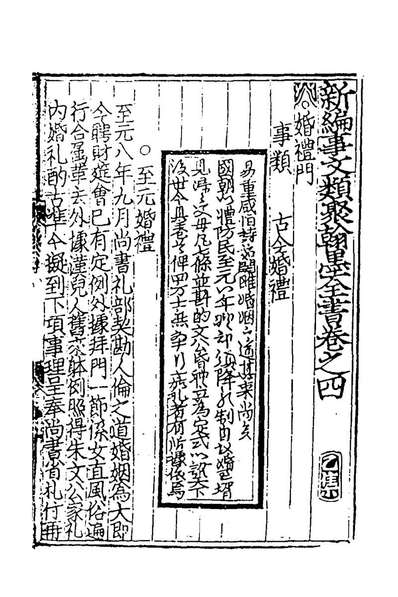 新編事文類聚翰墨全書卷之四 乙集
婚禮門
事類 古今婚禮
易重咸恒詩首關雎婚姻之道其來尚矣
國朝以禮防民至元八年禮部頒降制自議婚至壻
見婦之父母凡七條並斟酌文公婚禮立為定式以詔天下
後世今具著俾四方士無爭
至元婚禮
至元八年九月尚書礼部契勘人倫之道婚姻為大即
今聘財筵會已有定例外據拜門一節係女直風俗遍
行合屬革去外據漢兒人舊來体例照得朱文公家礼
內婚礼酌古準今擬到下項事理呈奉尚書省札付再